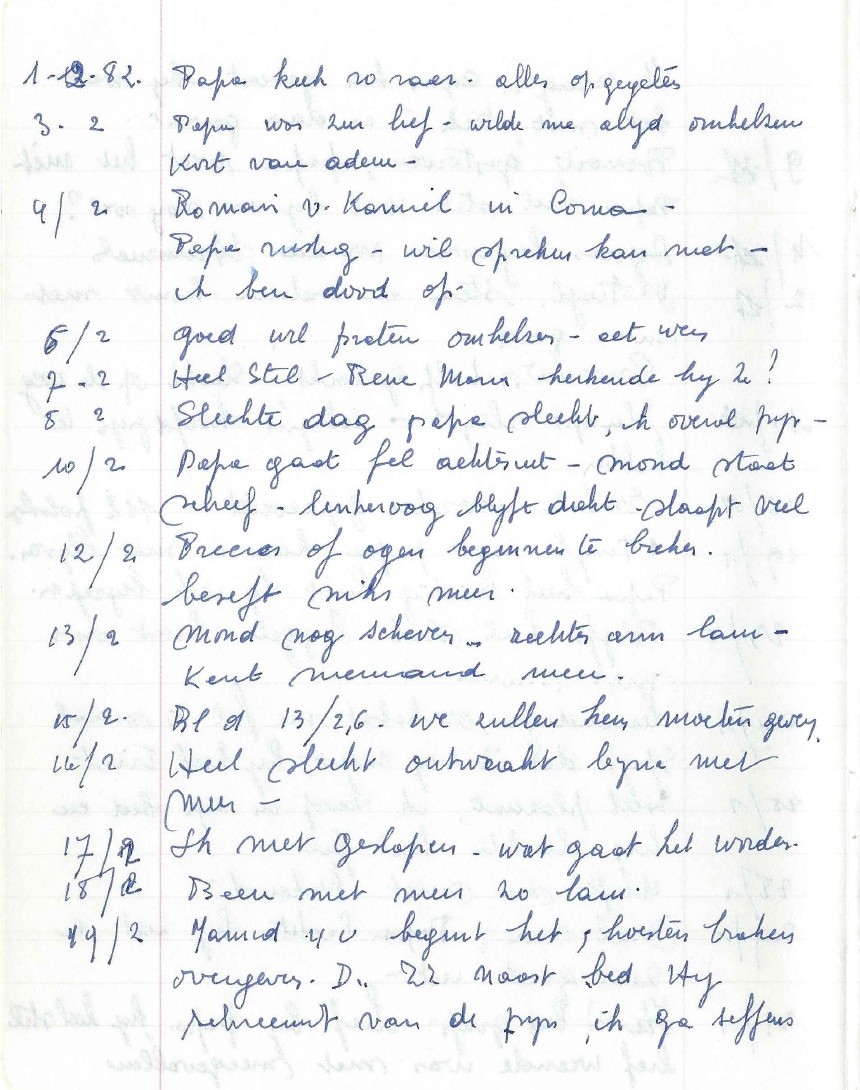 1-2-82. Papa keek zo raar. alles opgegeten
3. 2 Papa was zeer lief - wilde me altyd omhelzen
Kort van adem -
4/2 Romain v. Kamiel in Coma -
Papa rustig - wil spreken kan niet -
ik ben dood op -
6/2 goed wil praten omhelzen - eet
7.2 Heel Stil - Rene herkende hy ze?
8 2 Slechte dag papa slecht, ik overal pyn -
10/2 Papa gaat fel achteruit - mond staat
scheef - linkeroog blyft dicht - slaapt veel
12/2 Precies of ogen beginnen te breken.
beseft niks meer.
13/2 Mond nog schever - rechter arm lam -
Kent niemand meer.
15/2. Bl d 13/2,6 - we zullen hem moeten geven
16/2 Heel slecht ontwaakt byna niet
meer -
17/2 Ik niet geslapen - wat gaat het worden.
18/2 Been niet meer zo lam.
19/2 4 u begint het, hoesten braken
overgeven. D. ZZ naast bed Hy
schreeuwt van de pyn, ik ga seffens